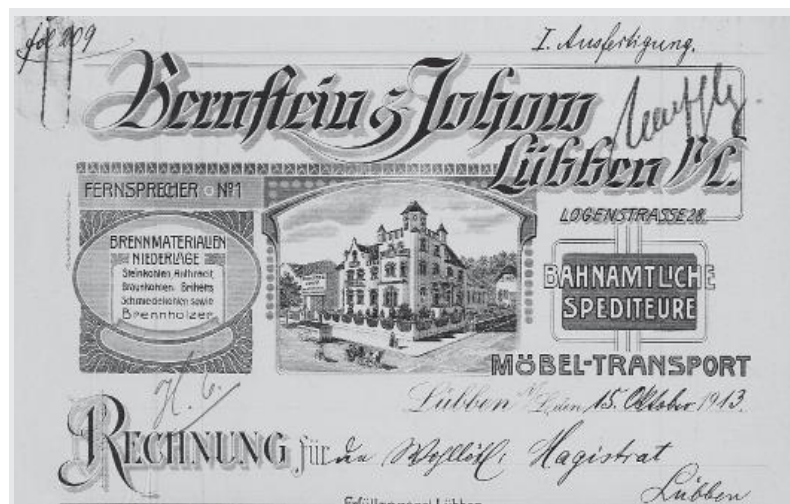 fol 209
I. Ausfertigung.
Bernstein & Johow
Lübben N/L.
FERNSPRECHER Nº1
LOGENSTRASSE 28.
BRENNMATERIALIEN
NIEDERLAGE
Steinkohlen, Anthrazit,
Braunkohlen, Briketts
Schmiedekohlen sowie
Brennhölzer
BAHNAMTLICHE
SPEDITEURE
MÖBEL-TRANSPORT
Lübben N/L den 15. Oktober 1913.
RECHNUNG für den Wohllöbl. Magistrat
Lübben